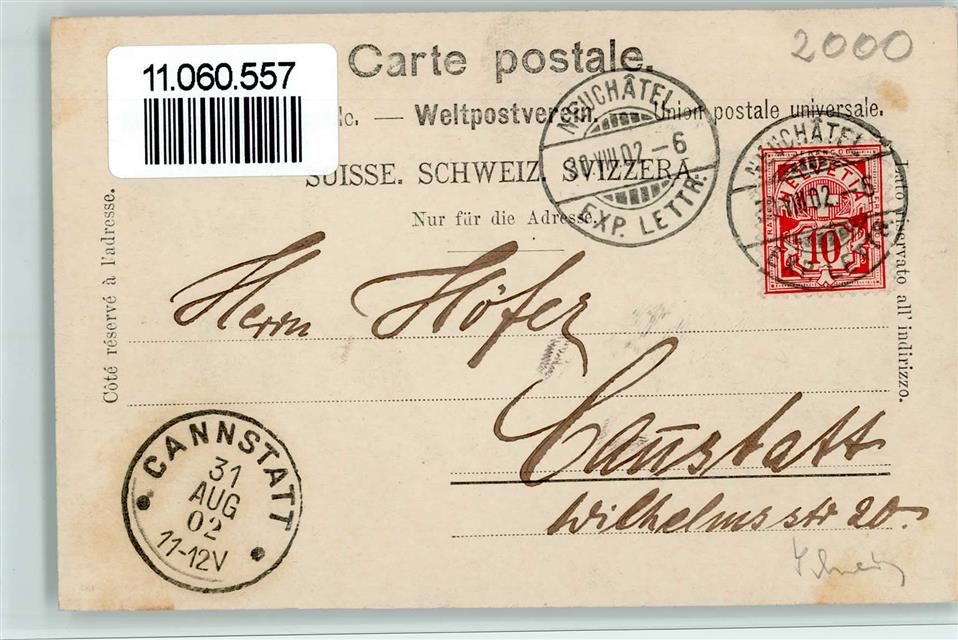 2000
11.060.557
Carte postale.
Weltpostverein. — Union postale universale.
SUISSE. SCHWEIZ. SVIZZERA.
Nur für die Adresse.
NEUCHÂTEL
30.VIII.02.–6
EXP. LETTR.
NEUCHÂTEL
VIII.02.–6
EXP. LETTR.
HELVETIA
10
Côté réservé à l'adresse.
Lato riservato all' indirizzo.
Herrn Höfer
Cannstatt
Wilhelmsstr 20.
CANNSTATT
31
AUG
02
11-12V
Schweiz